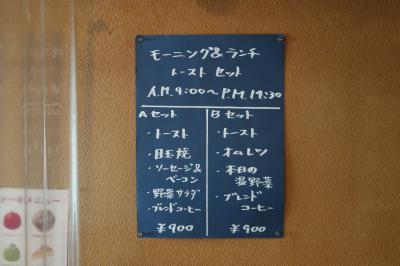 モーニング&ランチ
トースト セット
A.M.9:00〜P.M.14:30
Aセット
・トースト
・目玉焼
・ソーセージ&
ベーコン
・野菜サラダ
・ブレンドコーヒー
¥900
Bセット
・トースト
・オムレツ
・本日の
温野菜
・ブレンド
コーヒー
¥900
ケーキメニュー